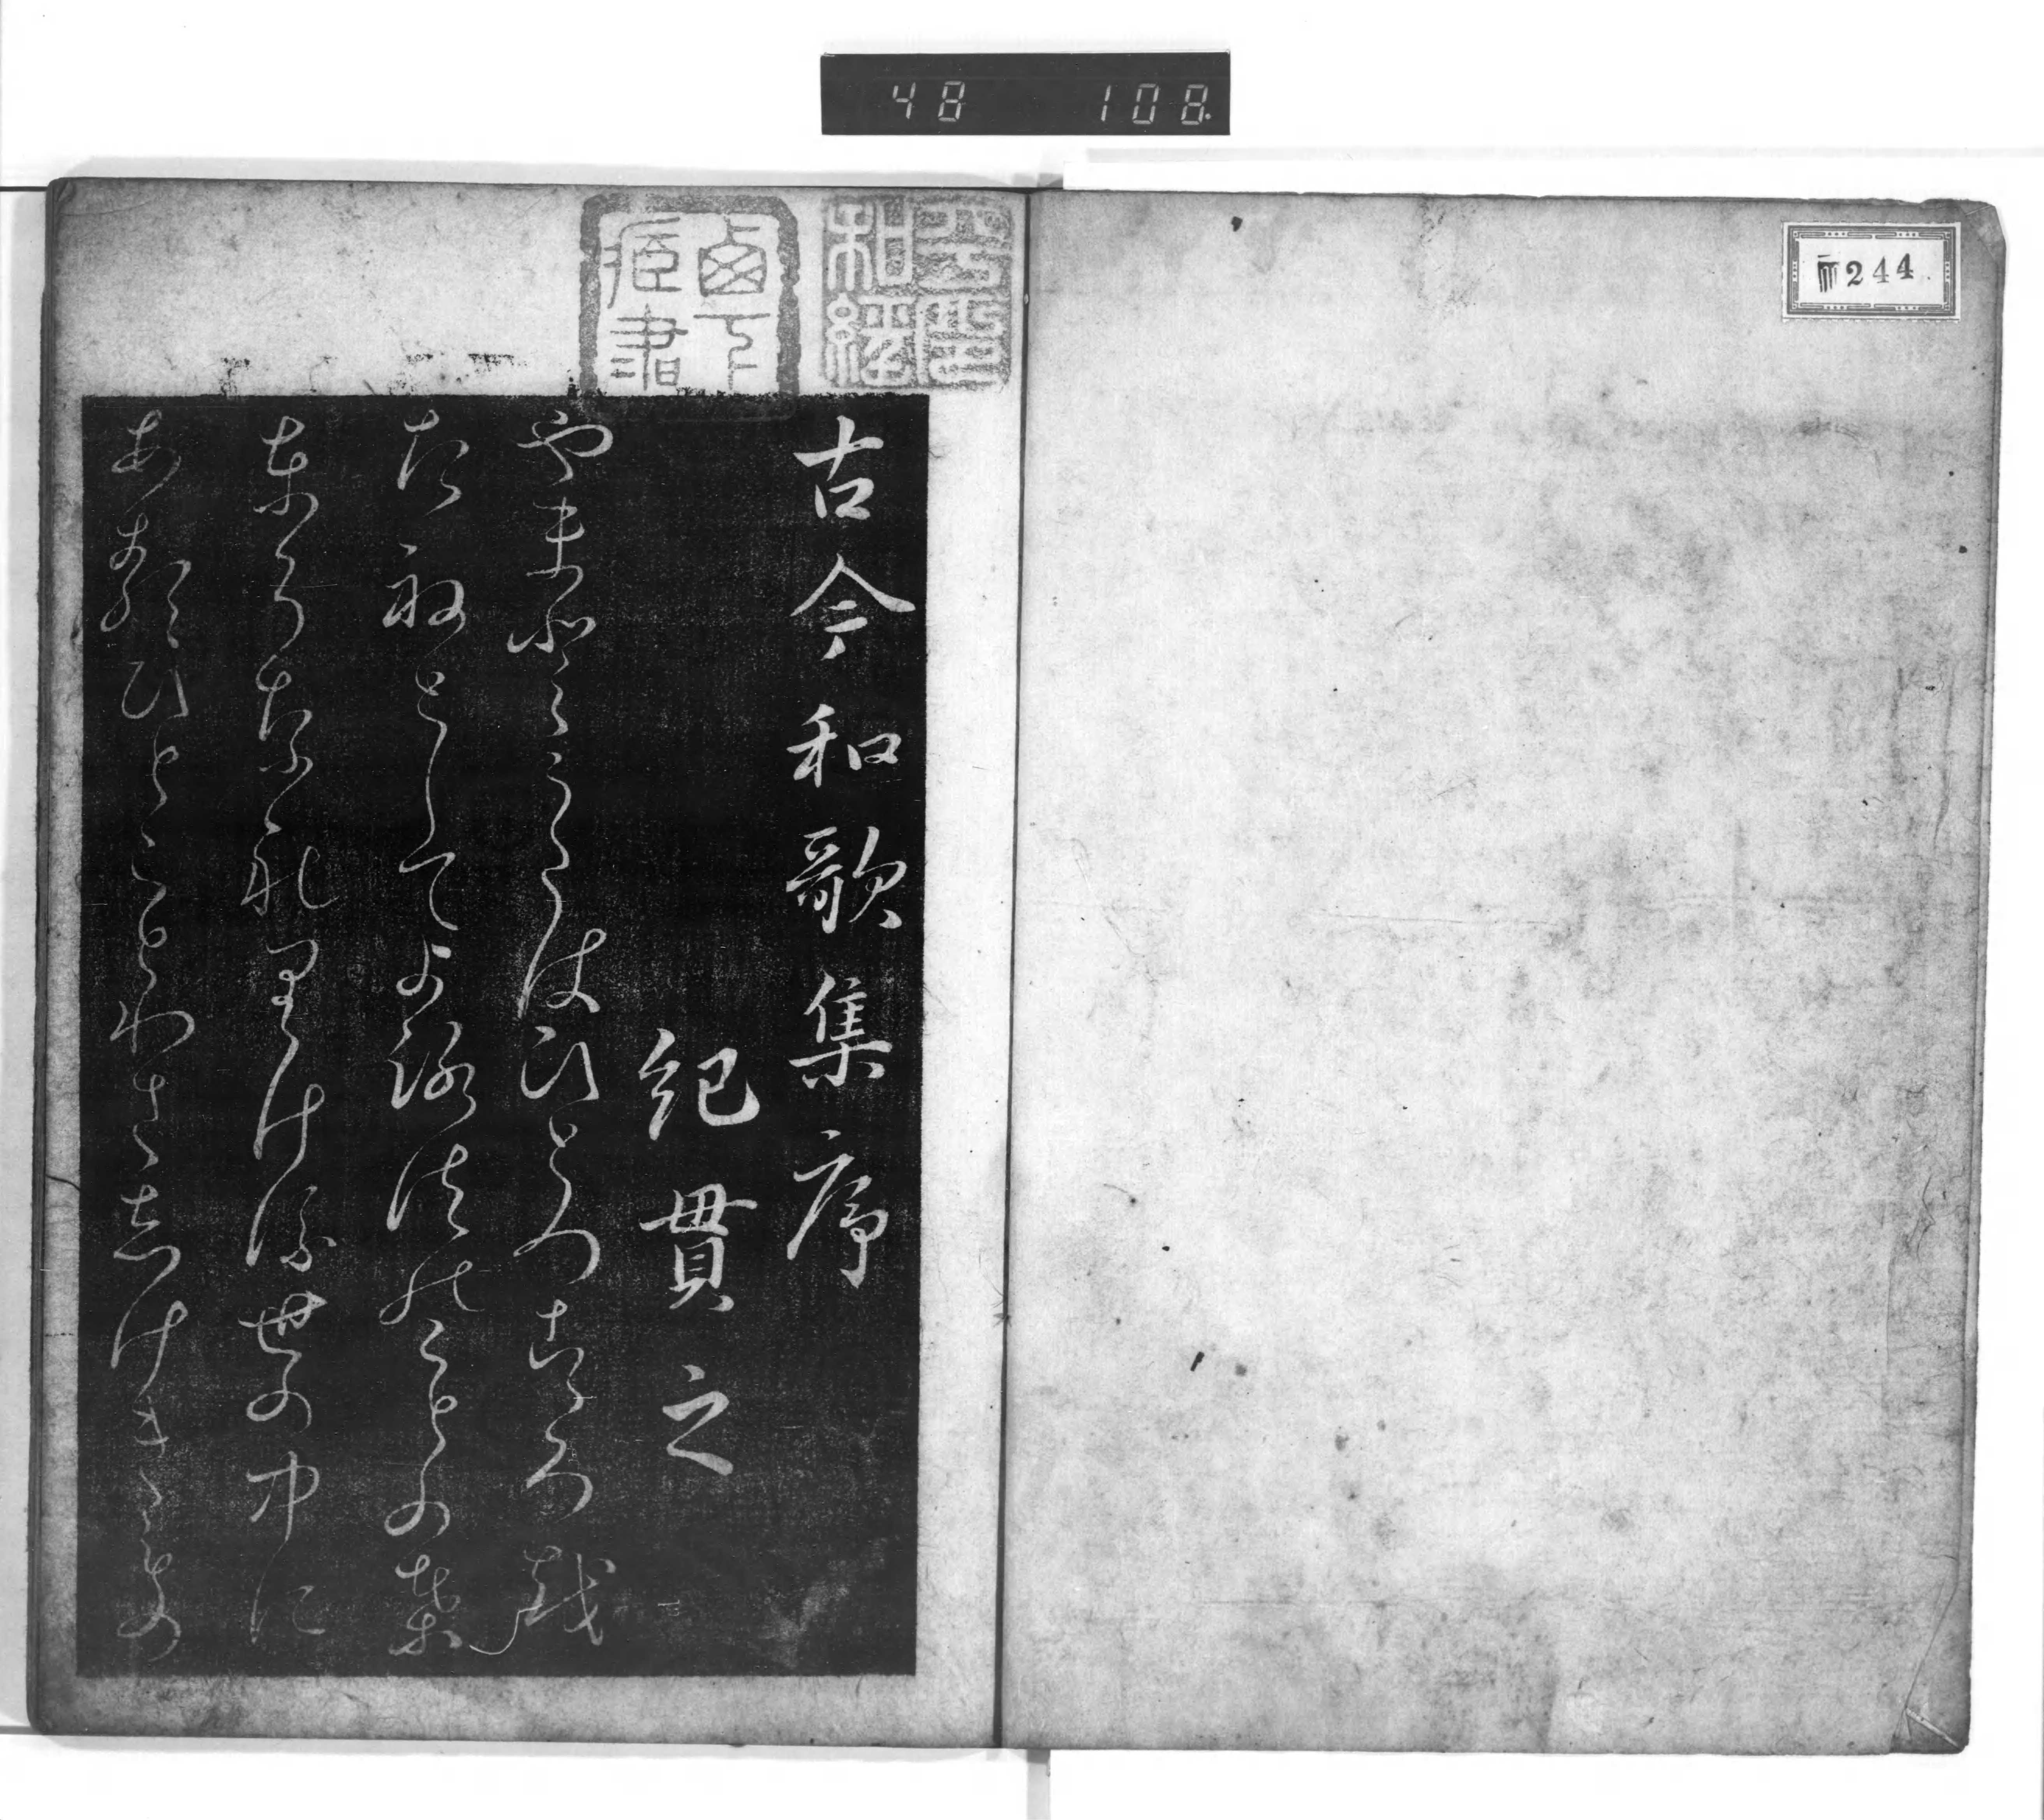 48 108.
244
古今和歌集序
紀貫之
やまとうたはひとのこゝろを
たねとしてよろつのことの葉
とそなれりける世の中に
あるひとことわさしけきもの